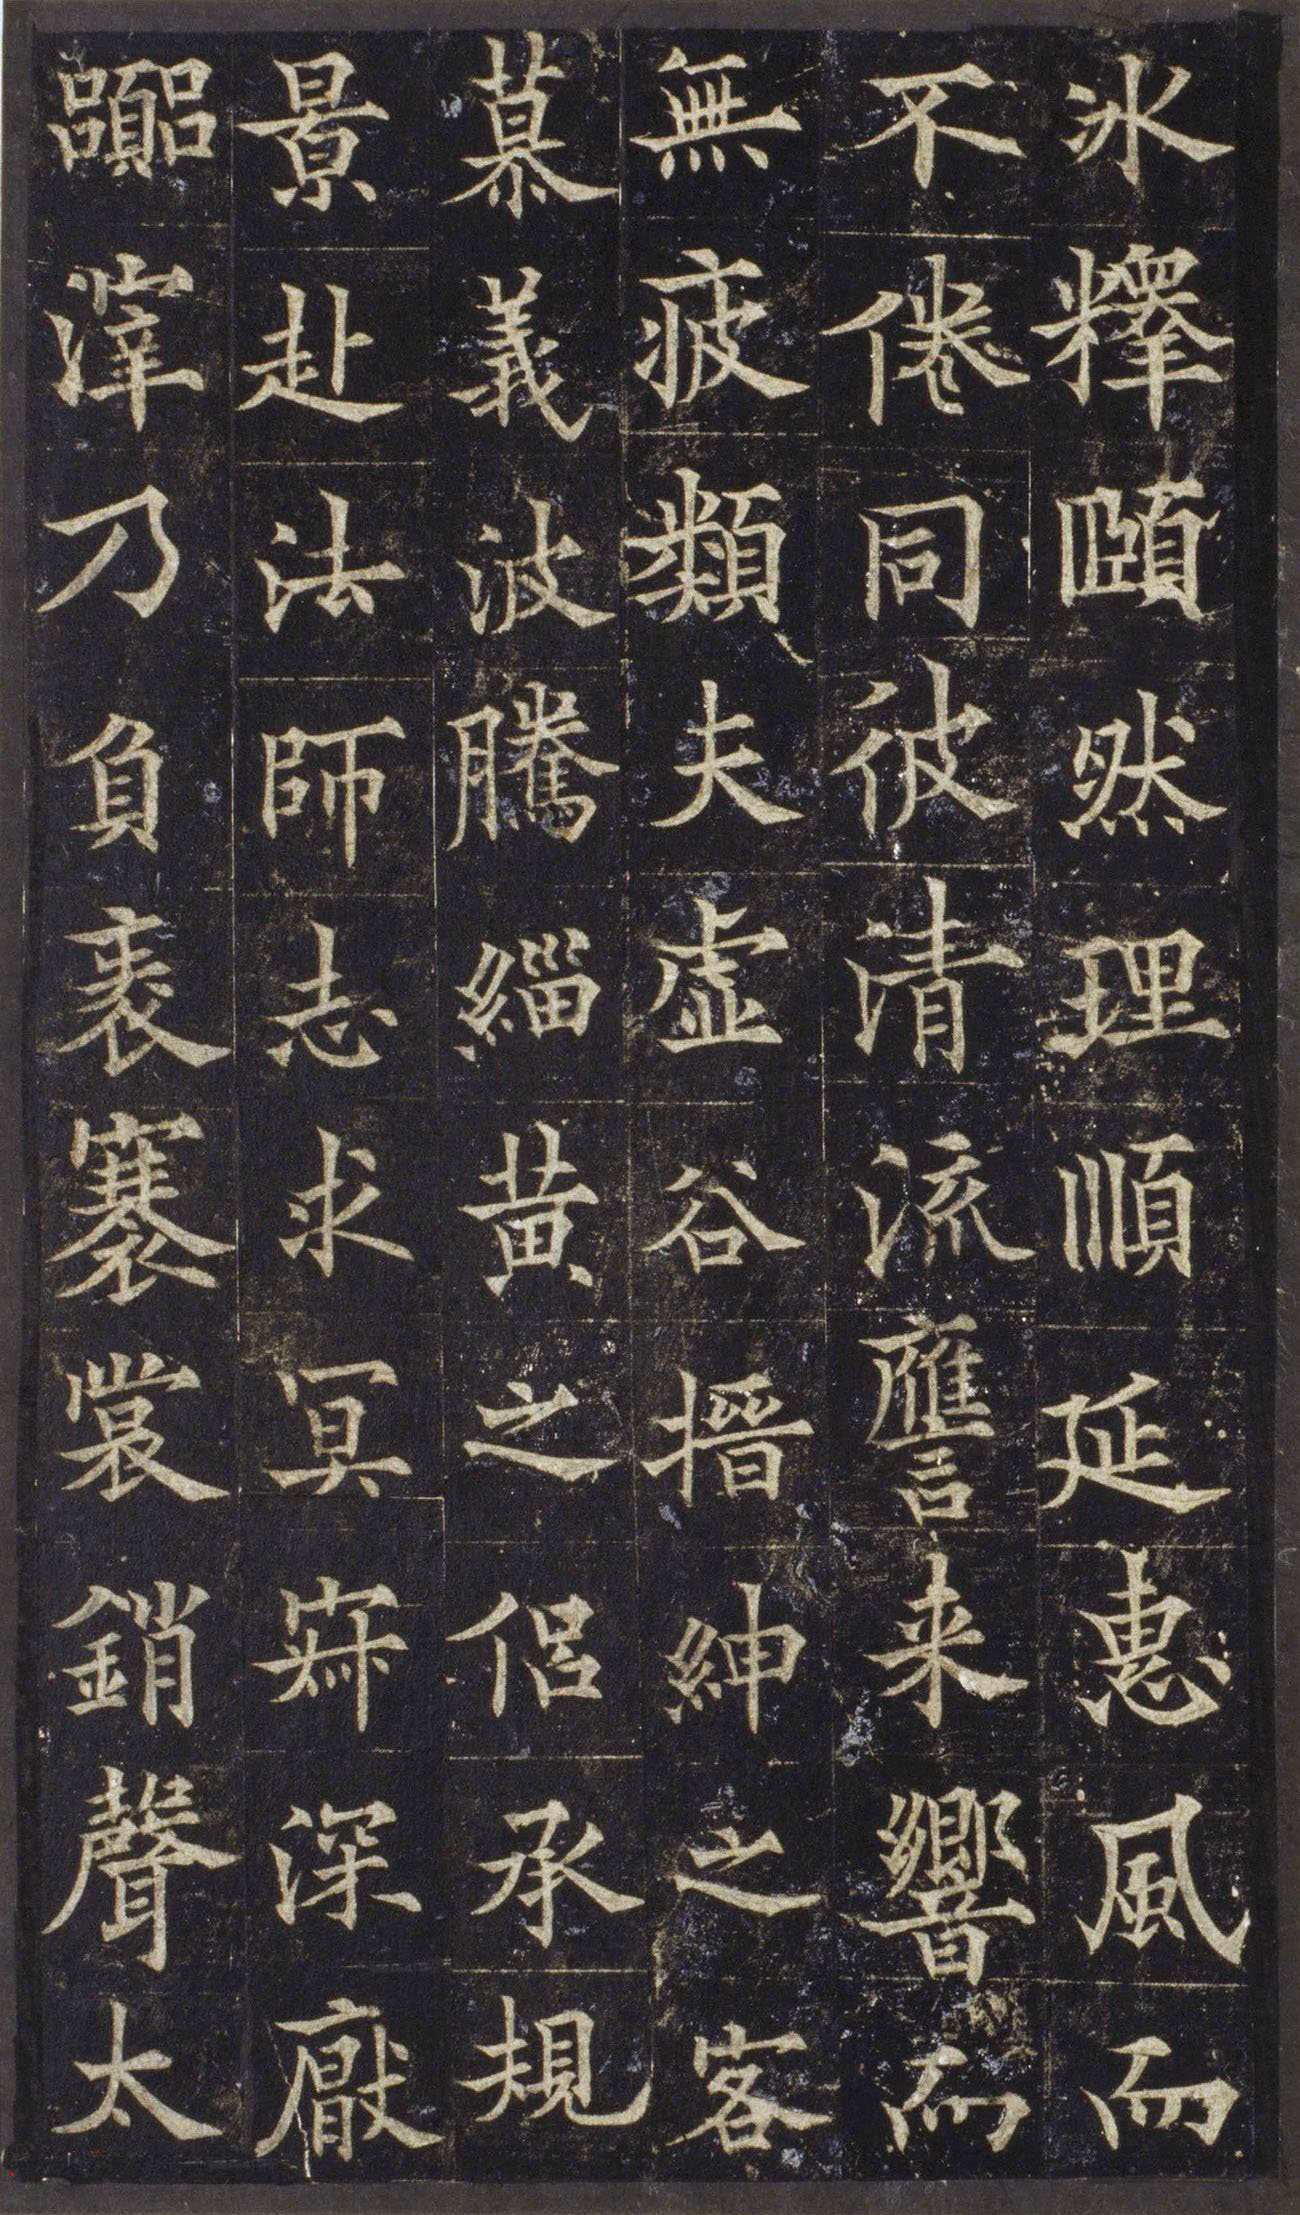 冰釋頤然理順延惠風而
不倦同彼清流應来響而
無疲類夫虛谷搢紳之客
慕義波騰緇黄之侶承規
景赴法師志求冥寂深厭
囂滓乃負袠褰裳銷聲太